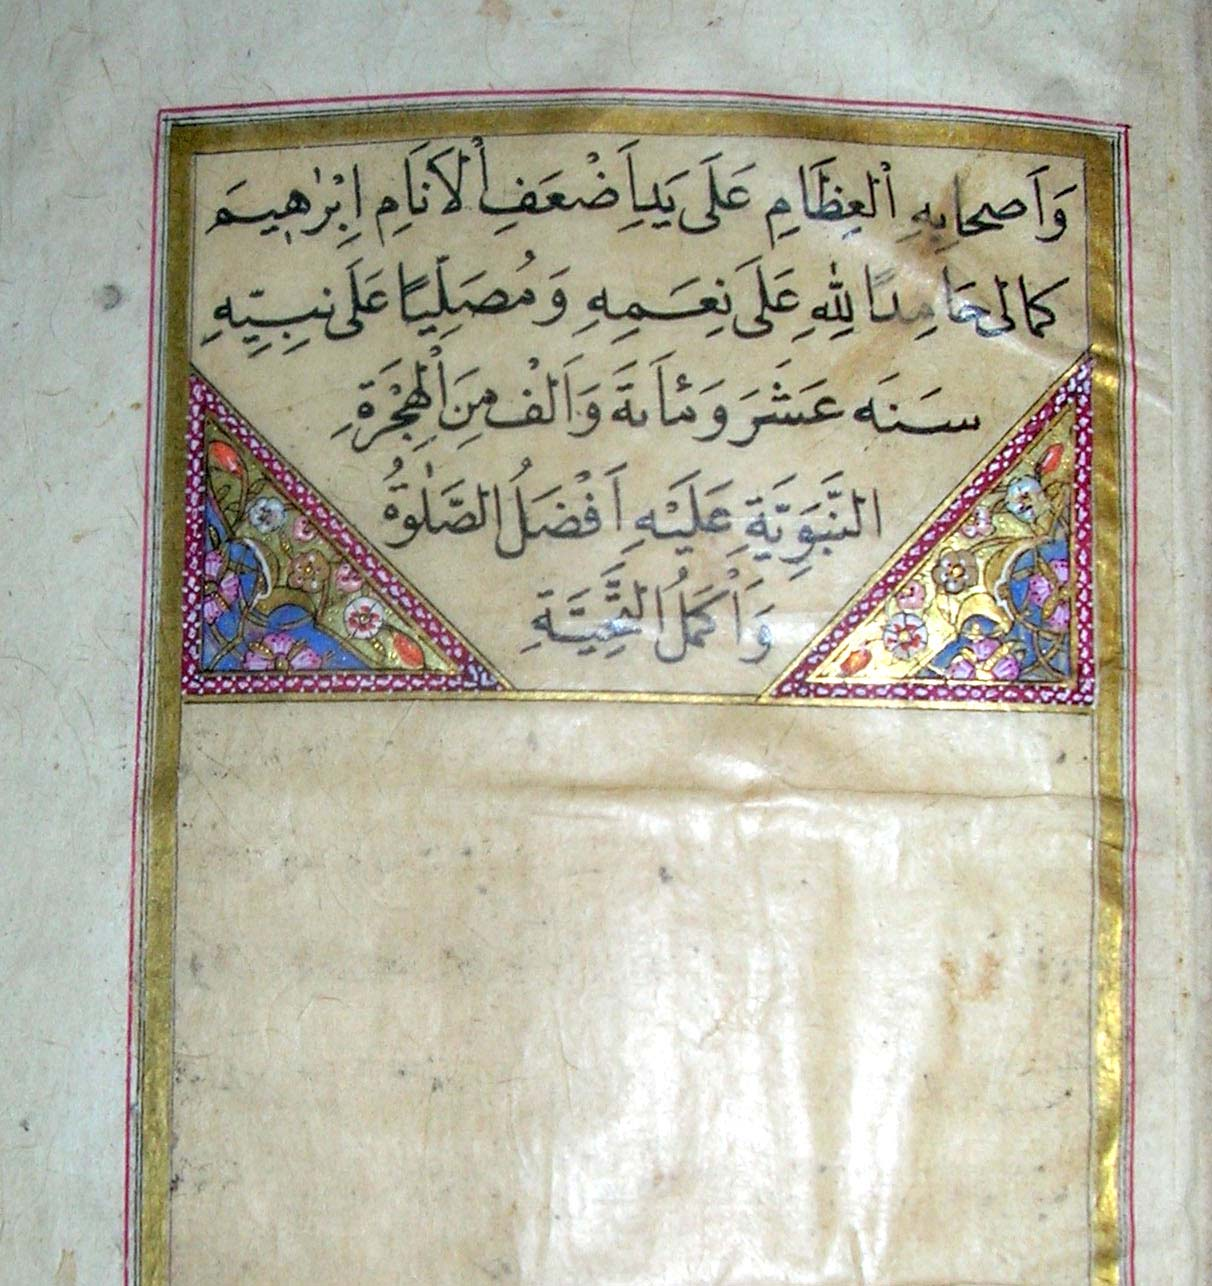 وَاَصحابِهِ الْعِظَامِ عَلَى يَدِ اَضْعَفِ الْاَنَامِ اِبْرٰهٖيمَ
كمالى حَامِدًا لِلهِ عَلَى نِعَمِهِ وَمُصَلِّيًا عَلَى نَبِيِّهِ
سَنَه عَشَرَ وَمِئَاىةَ وَاَلْف مِنَ الْهِجْرَةِ
النَّبَوِيَّةِ عَلَيْهِ اَفْضَلُ الصَّلٰوةُ
وَاَكْمَلُ التَّحِيَّةِ